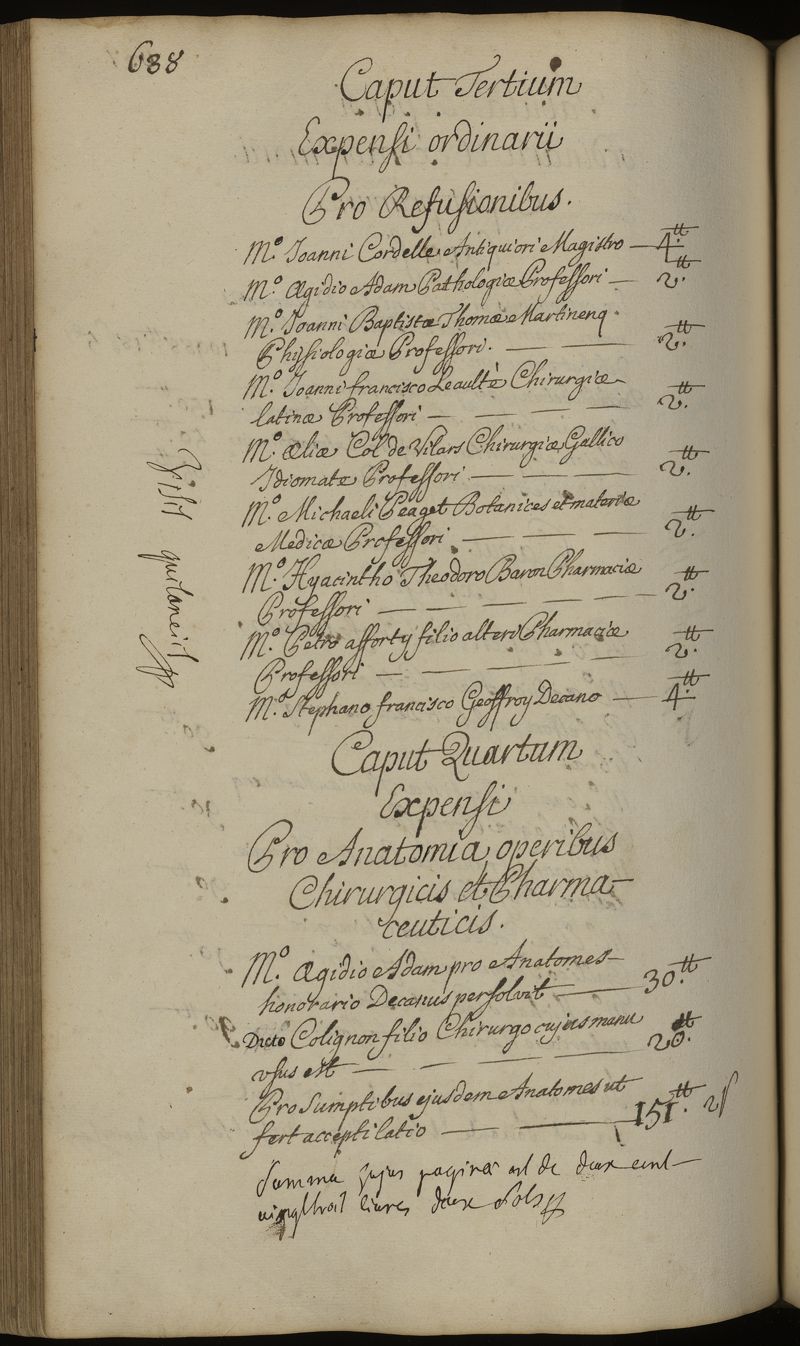 638
Caput Tertium
Expensi ordinarii
Pro Refusionibus.
M.º Joanni Cordelle Antiquiori Magistro — 4.tt
M.º Ægidio Adam Pathologiæ Professori — 2.tt
M.º Joanni Baptistæ Thomæ Martinenq.
Physiologiæ Professori. — — 2.tt
M.º Joanni francisco Leaulté Chirurgiæ
latinæ Professori — — — — 2.tt
M.º æliæ Col de Vilars Chirurgiæ Gallico
Idiomate Professori — — 2.tt
M.º Michaeli Peaget Botanices et materiæ
Medicæ Professori — — — 2.tt
M.º Hyacintho Theodoro Baron Pharmaciæ
Professori — — — — 2.tt
M.º Petro afforty filio alteri Pharmaciæ
Professori — — — — 2.tt
M.º Stephano francisco Geoffroy Decano — 4.tt
Caput Quartum
Expensi
Pro Anatomia, operibus
Chirurgicis et Pharma-
ceuticis.
M.º Ægidio Adam pro Anatomes
honorario Decanus persolvit — 30.tt
Dicto Colignon filio Chirurgo cujus manu
usus est — — — — 20.tt
Pro Sumptibus ejusdem Anatomes ut
fert acceptilatio — — 151.tt 2ſ
Summa hujus paginæ est de deux cent
vingt huit livres deux sols